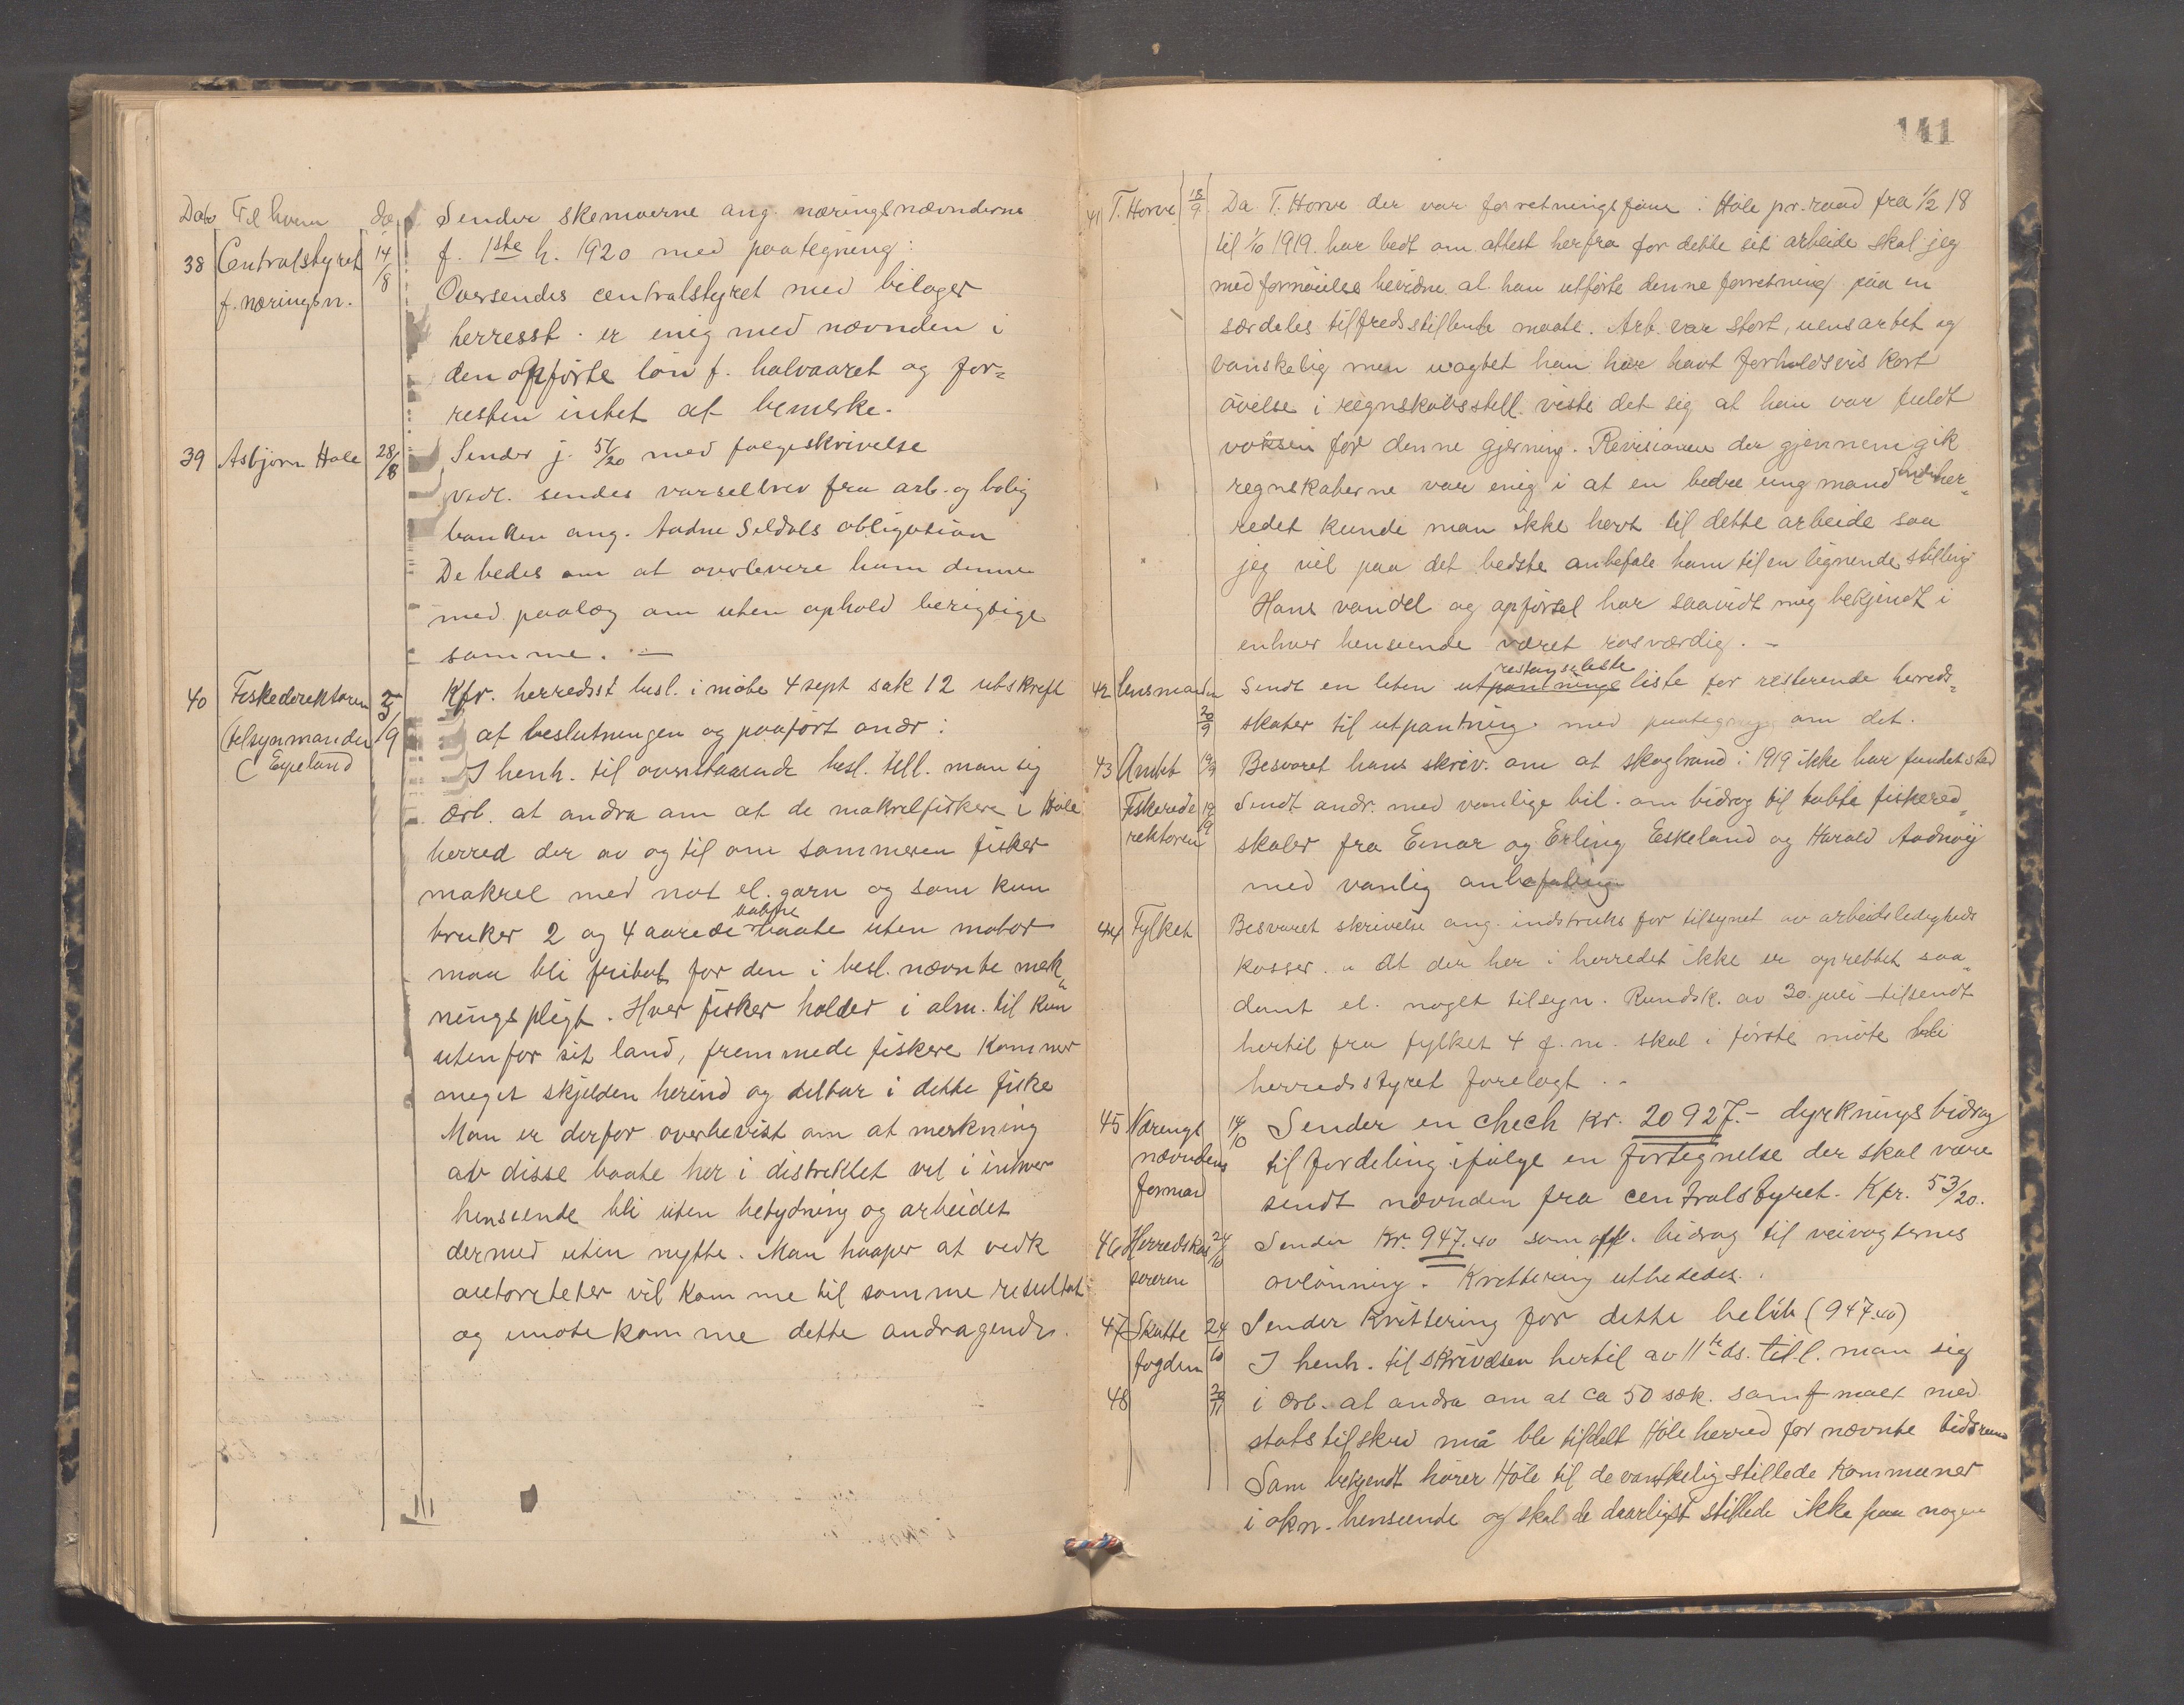 Dato Til hvem da Sender skemaerne ang. næringsnævnderne
38 Centralstyret 14/8 f. 1ste h. 1920 med paategning:
f. næringsn. Oversendes centralstyret med bilager
herresst. er enig med nævnden i
den opførte løn f. halvaaret og for-
resten intet at bemerke.
39 Asbjørn Hole 28/8 Sender j. 51/20 med følgeskrivelse
Vedl. sendes varselbrev fra arb. og bolig
banken ang. Aadne Seldals obligation
De bedes om at overlevere ham denne
med paalæg om uten ophold berigtige
samme. —
40 Fiskedirektøren 5/9 Kfr. herredsst besl. i møte 4 sept sak 12 utskrift
(tilsynmanden af beslutningen og paaført andr:
Eyeland I henh. til ovenstaaende besl. till. man sig
ærb. at andra om at de makrelfiskere i Høle
herred der av og til om sommeren fisker
makrel med not el. garn og som kun
bruker 2 og 4 aarede baate uten motor
maa bli fritat for den i besl. nævnte merk-
ningspligt. Hver fisker holder i alm. til kun
utenfor sit land, fremmede fiskere kommer
meget skjelden herind og deltar i dette fiske
Man er derfor overbevist om at merkning
av disse baate her i distriktet vil i enhver
henseende bli uten betydning og arbeidet
dermed uten nytte. Man haaper at vedk
autoriteter vil komme til samme resultat
og imøtekomme dette andragende.
141
41 T. Horve 18/9 Da T. Horve der var forretningsfører i Høle pr.raad fra 1/2 18
til 1/10 1919. har bedt om attest herfra for dette sit arbeide skal jeg
med fornøielse bevidne at han utførte denne forretning paa en
særdeles tilfredsstillende maate. Arb. var stort, uensartet og
vanskelig men uagtet han har havt forholdsvis kort
øvelse i regnskabsstell. viste det sig at han var fuldt
voksen for denne gjerning. Revisionen der gjennemgik
regnskaberne var enig i at en bedre ung mand her-
redet kunde man ikke havt til dette arbeide saa
jeg vil paa det bedste anbefale ham til en lignende stilling
Hans vandel og opførsel har saavidt mig bekjendt i
enhver henseende været rosværdig. —
restanseliste
42 Lensmanden Sendt en liten utpantnings liste for resterende herreds-
20/9 skater til utpantning med paategning om det.
43 Amtet 19/9 Besvaret hans skriv. om at skogbrand i 1919 ikke har fundet sted
Fiskeridi 19/9 Sendt andr. med vanlige bil. om bidrag til tabte fiskered-
rektøren skaber fra Einar og Erling Eskeland og Harald Aadnøy
med vanlig anbefaling
44 Fylket Besvaret skrivelse ang. instruks for tilsynet av arbeidsledigheds
kasser. " At der her i herredet ikke er oprettet saa-
dant el. noget tilsyn. Rundsk. av 30. juli tilsendt
hertil fra fylket 4 f.m. skal i første møte bli
herredsstyret forelagt. -
45 Nærings 14/10 Sender en chech kr. 20927.- dyrkningsbidrag
nævndens til fordeling ifølge en fortegnelse der skal være
formand sendt nævnden fra centralstyret. Kfr. 53/20.
46 Herredskas 24/10 Sender kr. 947.40 som off. bidrag til veivogternes
sereren avlønning. Kvittering utbededes.
47 Skatte 24/10 Sender kvittering for dette beløb (947.40)
fogden I henh. til skrivelsen hertil av 11te ds. till. man sig
48 20/11 i ærb. at andra om at ca 50 sæk. samf. malt med
statstilskud må bli tildelt Høle herred for nævnte tidsrum
Som bekjendt hører Høle til de vanskelig stillede kommuner
i økn. henseende og skal de daarligst stillede ikke paa nogen